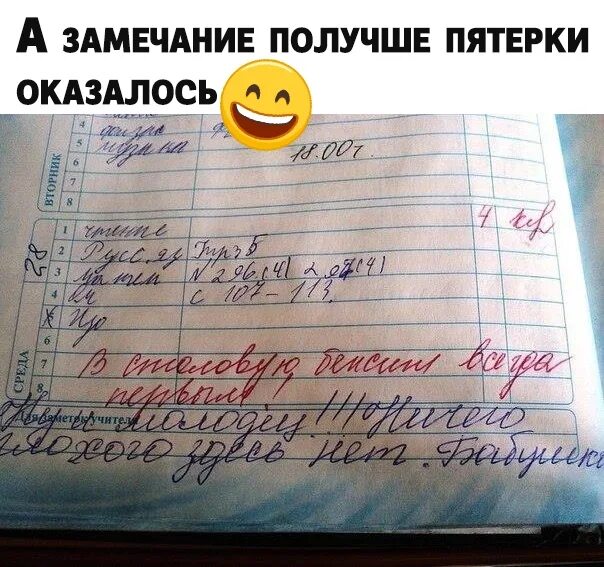 А ЗАМЕЧАНИЕ ПОЛУЧШЕ ПЯТЕРКИ
ОКАЗАЛОСЬ
4
5 музыка 18.00
6
7
8
ВТОРНИК
28
1 чтение 4
2 Русс. яз Упр 5
3 N 296 (4)
4 с 107-113.
5 Изо
6
7 В столовую бежит всегда
8 первым!
СРЕДА
Для заметок учителя
молодец!!! Ничего
плохого здесь нет. Бабушка